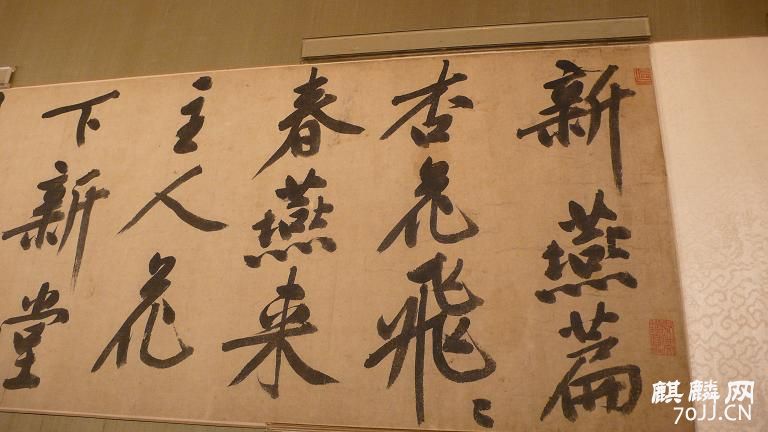 新燕篇
杏花飛〻
春燕来
主人花
下新堂
麒麟网
70JJ.CN